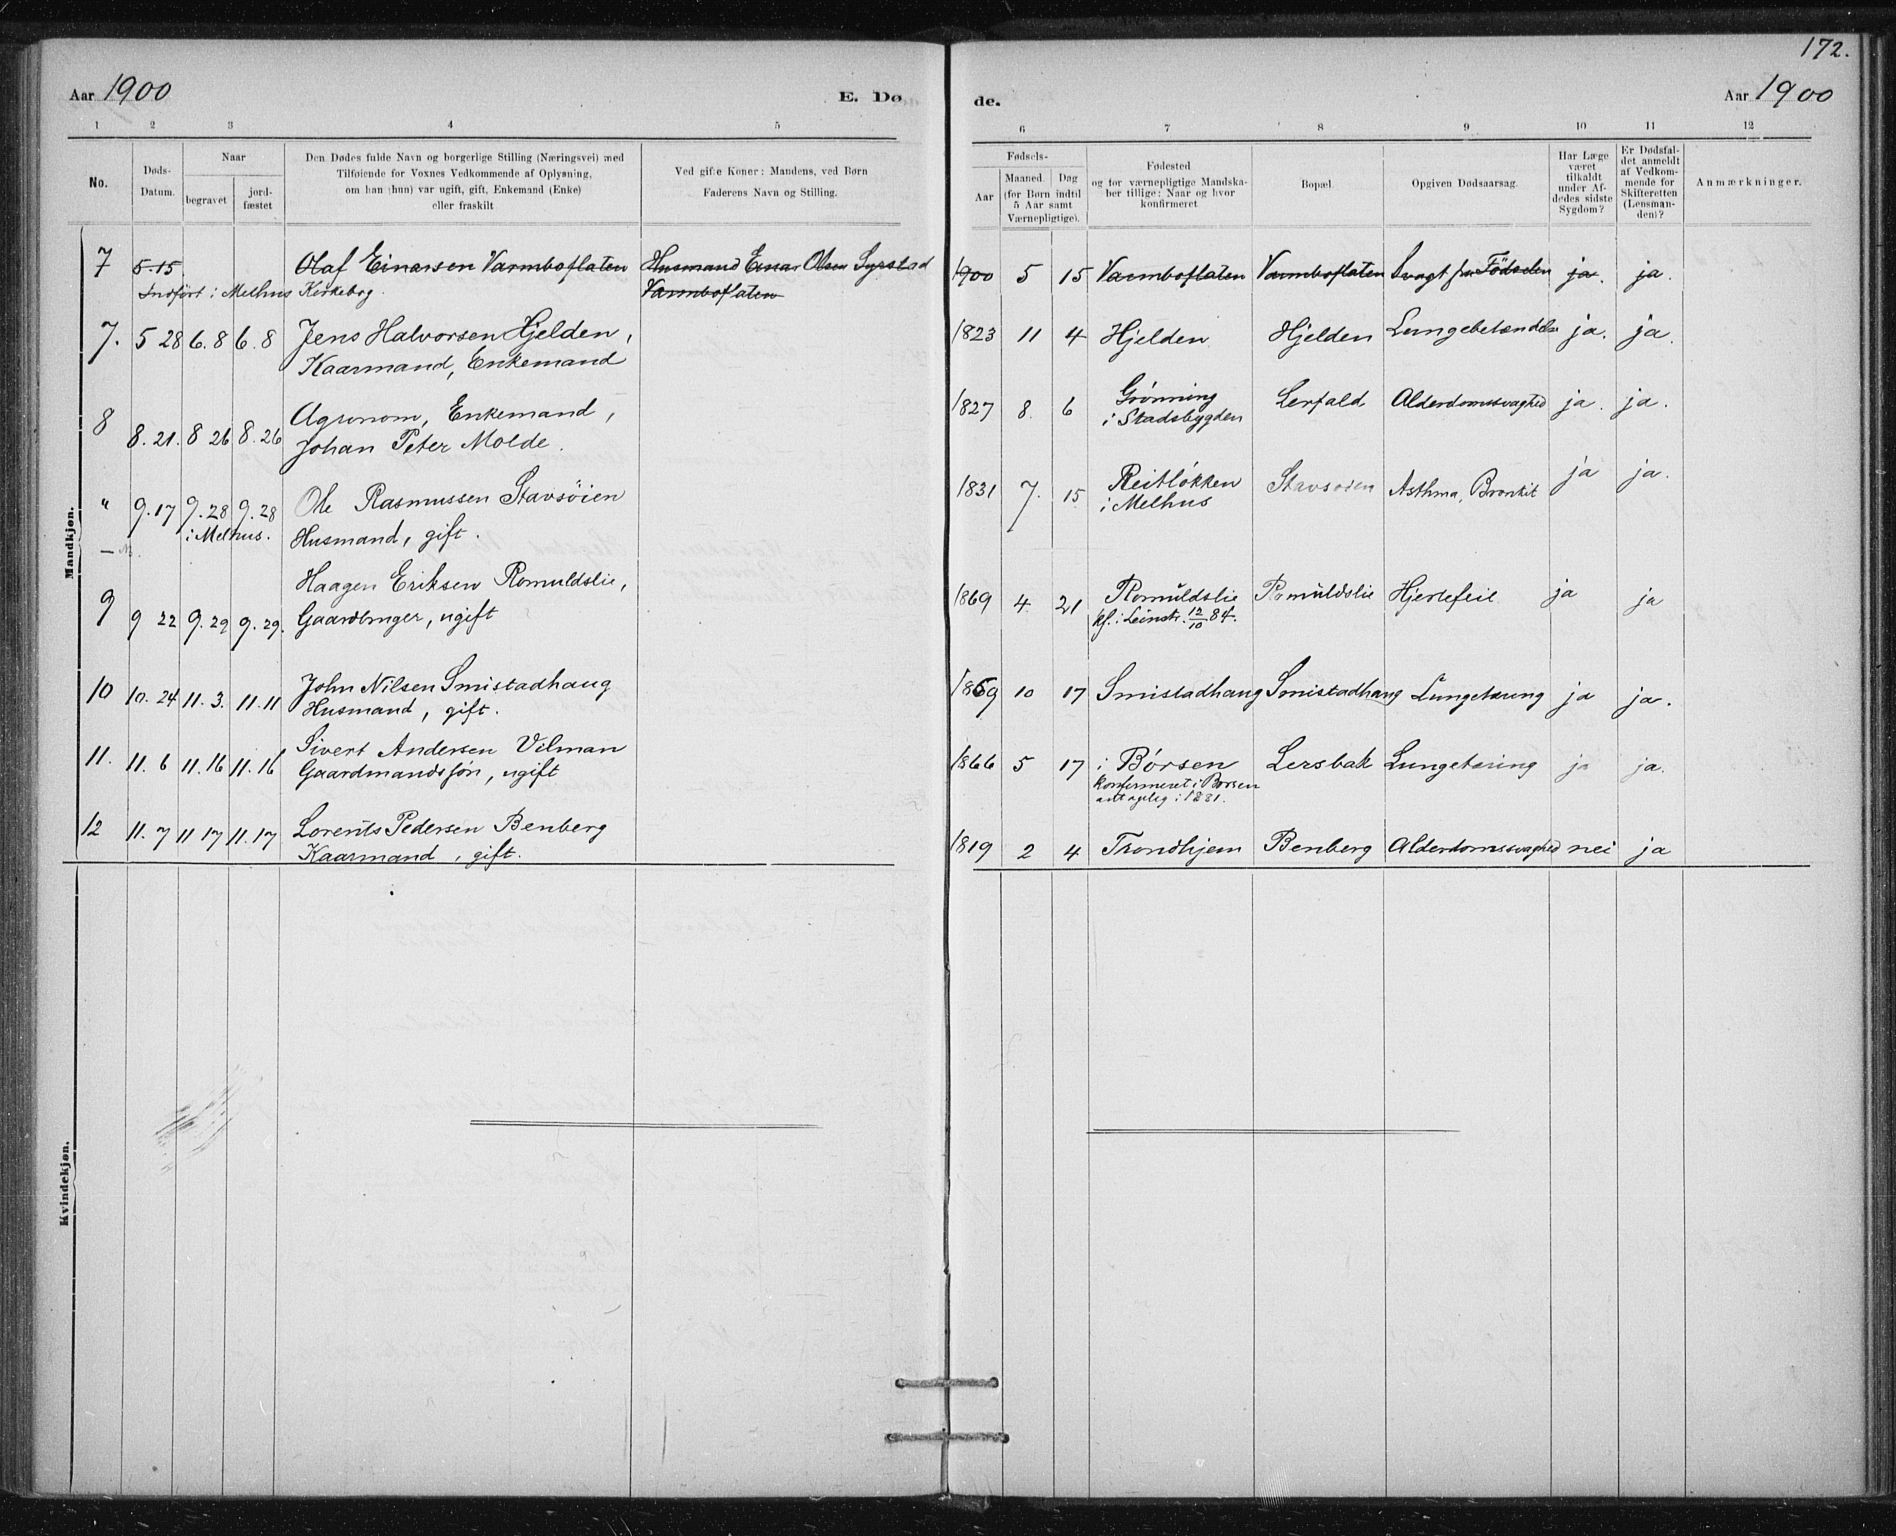 172.
Aar 1900
E. Dø
de.
Aar 1900
1 2 3 4 5
6 7 8 9 10 11 12
No.
Døds-
Datum.
Naar
begravet
jord-
fæstet
Den Dødes fulde Navn og borgerlige Stilling (Næringsvei) med
Tilføiende for Voxnes Vedkommende af Oplysning,
om han (hun) var ugift, gift, Enkemand (Enke)
eller fraskilt
Ved gifte Koner: Mandens, ved Børn
Faderens Navn og Stilling.
Fødsels-
Aar
Maaned. Dag
(for Børn indtil
5 Aar samt
Værnepligtige).
Fødested
og for værnepligtige Mandska-
ber tillige: Naar og hvor
konfirmeret
Bopæl.
Opgiven Dødsaarsag.
Har Læge
været
tilkaldt
under Af-
dødes sidste
Sygdom?
Er Dødsfal-
det anmeldt
af Vedkom-
mende for
Skifteretten
(Lensman-
den)?
Anmærkninger.
Mandkjøn.
7 5-15 Olaf Einarsen Varmboflaten Husmand Einar Olsen Syrstad 1900 5 15 Varmboflaten Varmboflaten Svagt fra Födselen ja. ja.
Indført i Melhus Kirkebog. Varmboflaten
7. 5 28 6.8 6.8 Jens Halvorsen Hjelden, 1823 11 4 Hjelden Hjelden Lungebetændelse ja. ja.
Kaarmand, Enkemand
8 8.21. 8 26 8.26 Agronom, Enkemand, 1827 8. 6 Grønning Lerfald Alderdomssvaghed ja. ja.
Johan Peter Molde. i Stadsbygden
" 9.17 9.28 9.28 Ole Rasmussen Stavsöien 1831 7. 15 Reitløkken Stavsøien Asthma, Bronkit ja ja.
i Melhus. Husmand, gift. i Melhus
9 9 22 9.29 9.29. Haagen Eriksen Romuldslie, 1869 4. 21 Romuldslie Romuldslie Hjertefeil ja ja
Gaardbruger, ugift kf. i Leinstr. 12/10 84.
10 10.24 11.3. 11.11 John Nilsen Smistadhaug 1869 10 17 Smistadhaug Smistadhaug Lungetæring ja ja.
Husmand, gift.
11. 11.6 11.16 11.16 Sivert Andersen Vilman 1866 5 17 i Børsen Lersbak Lungetæring ja ja.
Gaardmandssøn, ugift konfirmeret i Børsen
antagelig i 1881.
12 11.7 11 17 11.17 Lorents Pedersen Benberg 1819 2 4 Trondhjem Benberg Alderdomssvaghed nei ja
Kaarmand, gift.
Kvindekjøn.